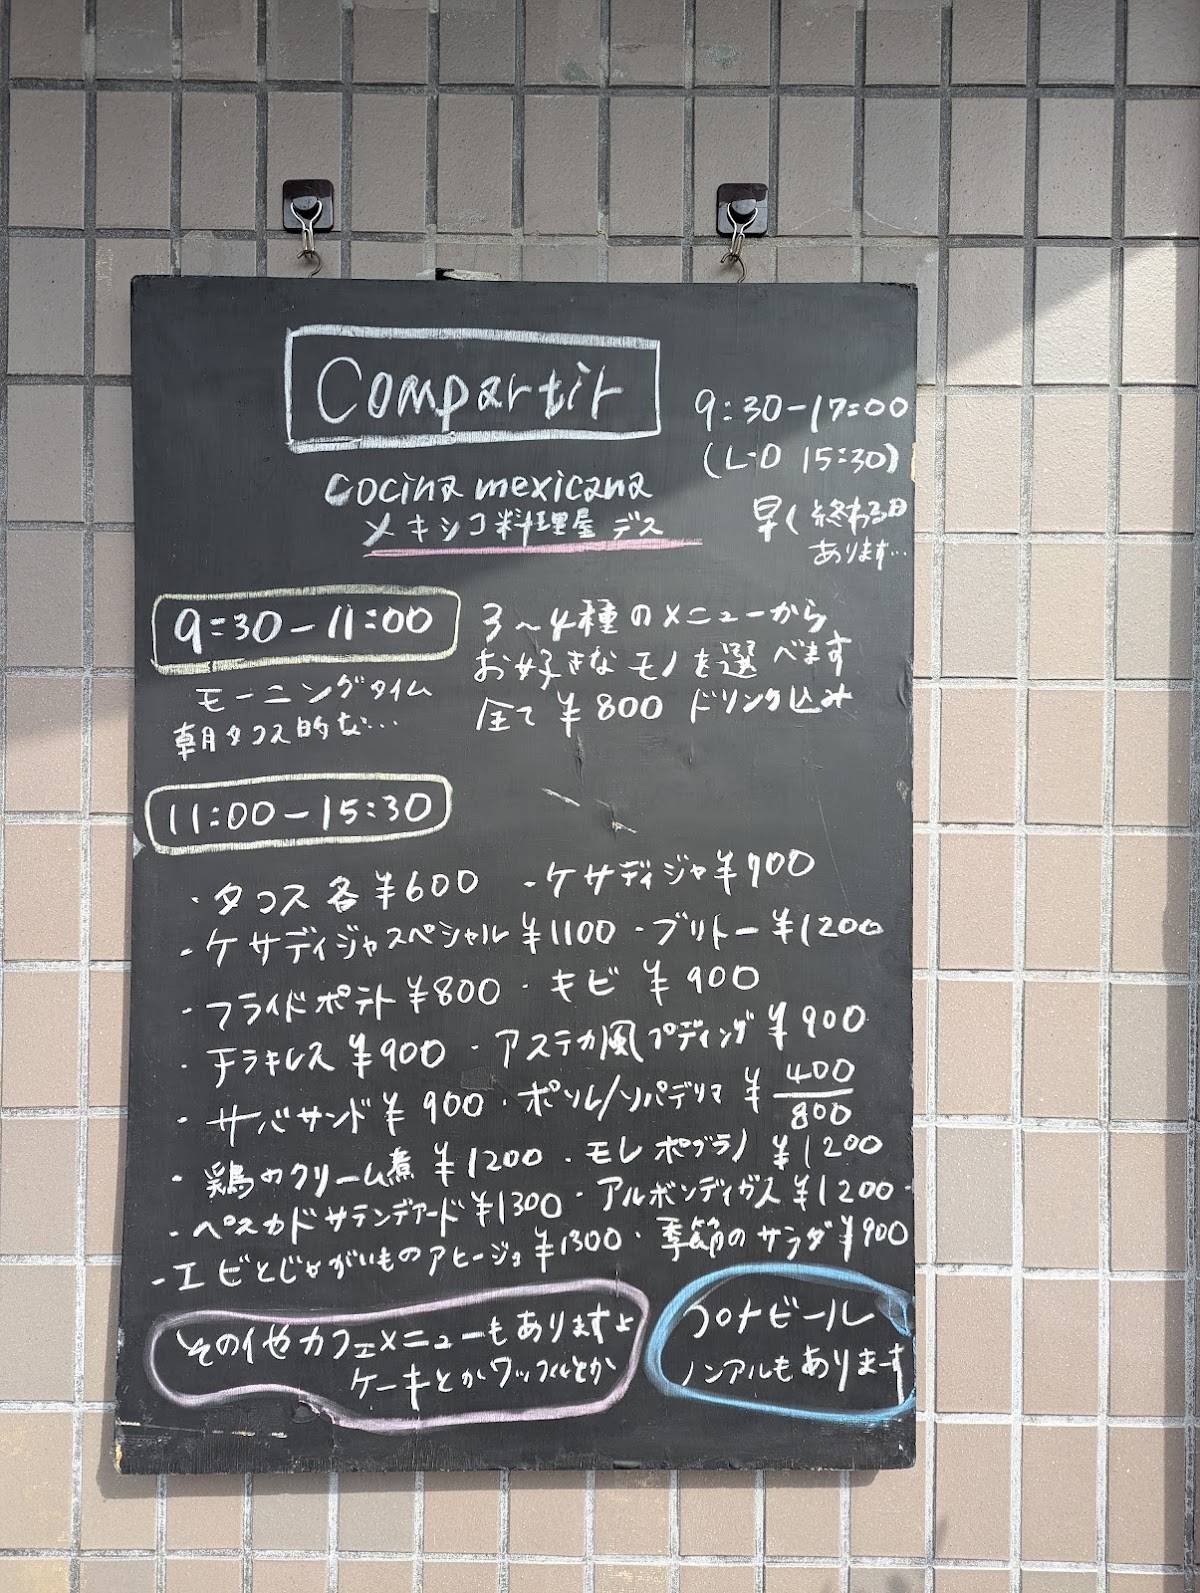 Compartir
9:30-17:00
(L・O 15:30)
cocina mexicana
メキシコ料理屋デス
早く終わる日
あります…
9:30-11:00
モーニングタイム
朝タコス的な…
3〜4種のメニューから
お好きなモノを選べます
全て¥800 ドリンク込み
11:00-15:30
・タコス各¥600 ・ケサディジャ¥700
・ケサディジャスペシャル¥1100・ブリトー¥1200
・フライドポテト¥800・キビ ¥900
・チラキレス¥900・アステカ風プディング¥900
・サバサンド¥900・ポソレ/ソパデリマ ¥400/800
・鶏のクリーム煮¥1200・モレポブラノ ¥1200
・ペスカドサテンデアード¥1300・アルボンディガス¥1200
・エビとじゃがいものアヒージョ¥1300・季節のサラダ¥900
その他カフェメニューもありますよ
ケーキとかワッフルとか
コロナビール
ノンアルもあります